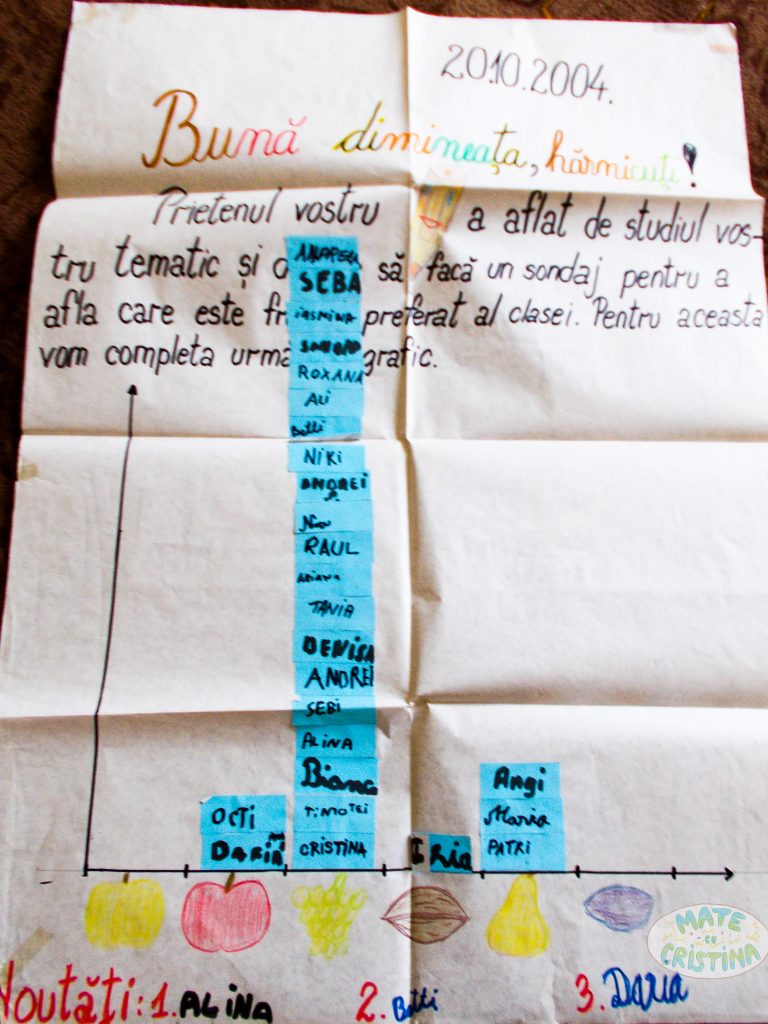 20.10.2004.
Bună dimineața, hărnicuți!
Prietenul vostru a aflat de studiul vos-
tru tematic și să facă un sondaj pentru a
afla care este preferat al clasei. Pentru aceasta
vom completa grafic.
SEBA
IASMINA
ROXANA
ALI
Betti
NIKI
ANDREI
RAUL
TANIA
DENISA
ANDREI
SEBI
ALINA
Bianca
TIMOTEI
CRISTINA
OCTI
DARIA
IRIA
Angi
Maria
PATRI
Noutăți: 1. ALINA 2. Betti 3. Daria
MATE
CU
CRISTINA